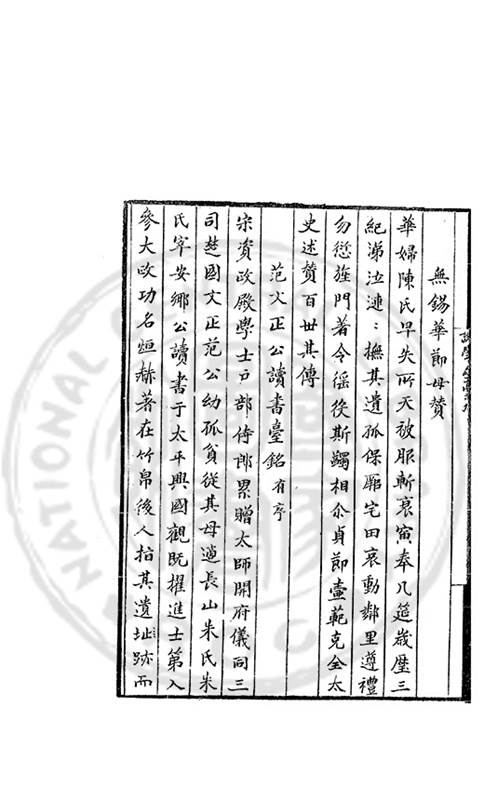 無錫華節母贊
華婦陳氏早失所天被服斬衰寅奉几筵歲歷三
紀涕泣漣〻撫其遺孤保厥宅田哀動鄰里遵禮
勿愆旌門著令徭役斯蠲相尒貞節壼範克全太
史述贊百世其傳
范文正公讀書臺銘有序
宋資政殿學士戶部侍郎累贈太師開府儀同三
司楚國文正范公幼孤貧從其母適長山朱氏朱
氏宰安鄉公讀書于太平興國觀既擢進士第入
參大政功名烜赫著在竹帛後人拍其遺址跡而
NATIONAL CENTRAL